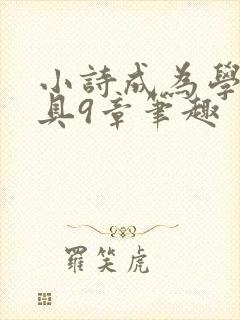 小詩成為學
具9章筆趣
羅笑虎